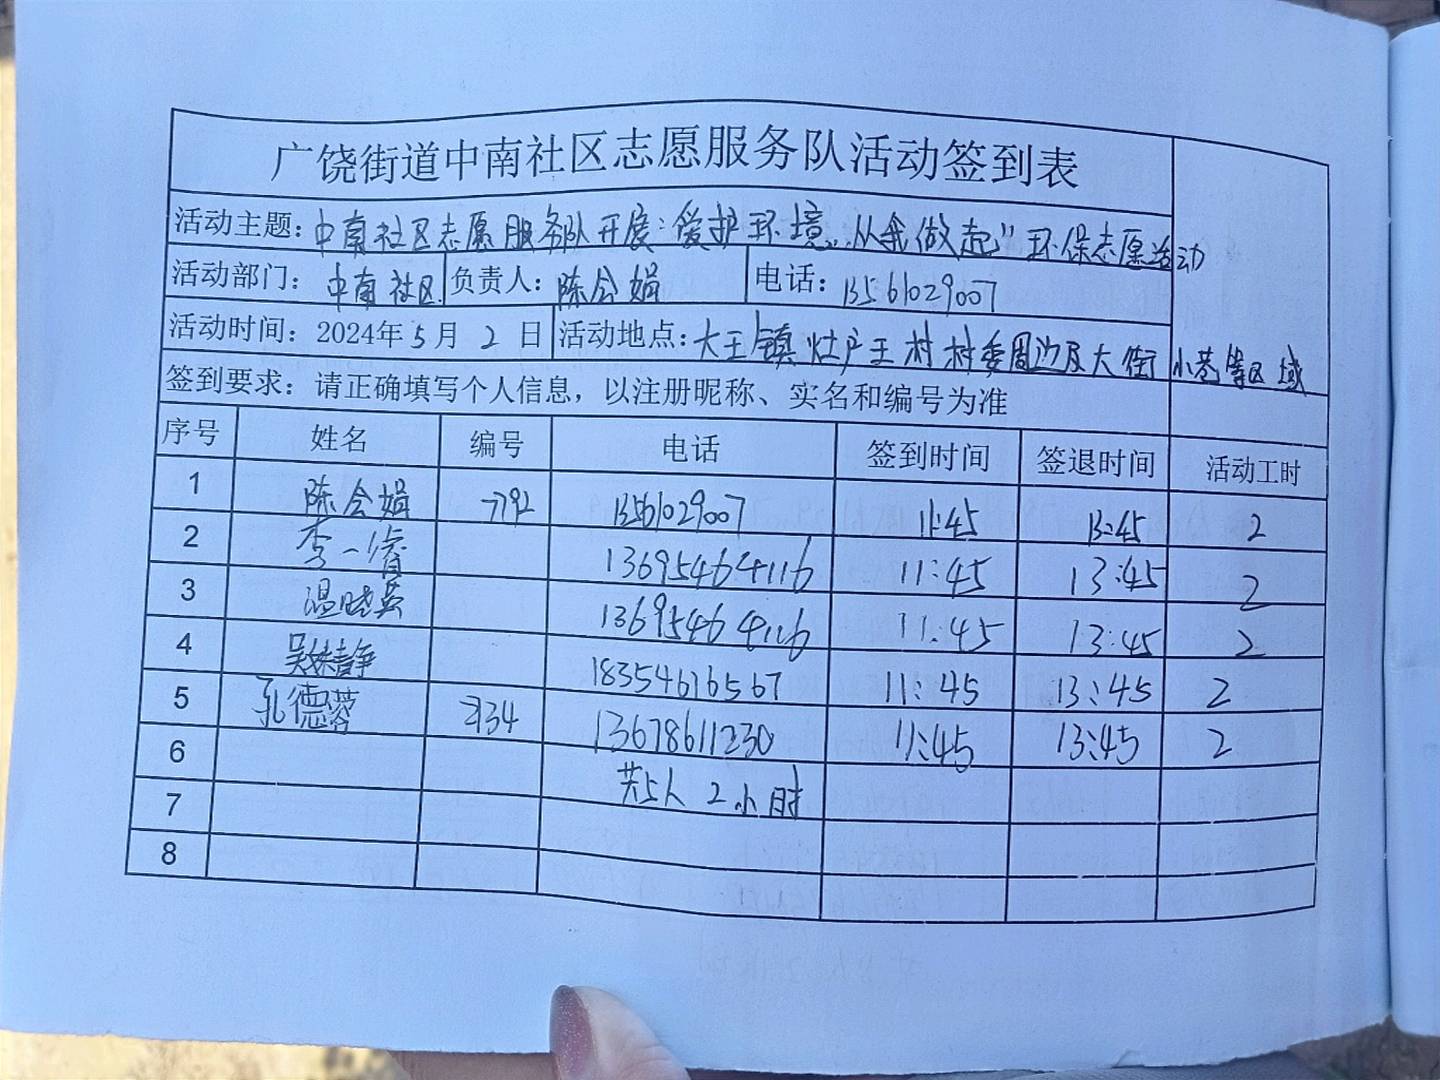 广饶街道中南社区志愿服务队活动签到表
活动主题：中南社区志愿服务队开展：爱护环境，从我做起"环保志愿活动
活动部门：中南社区 负责人：陈会娟 电话：13561029007
活动时间：2024年5月2日 活动地点：大王镇灶户王村村委周边及大街小巷等区域
签到要求：请正确填写个人信息，以注册昵称、实名和编号为准
序号 姓名 编号 电话 签到时间 签退时间 活动工时
1 陈会娟 7792 13561029007 11:45 13:45 2
2 李一睿 13695464116 11:45 13:45 2
3 温晓英 13695464116 11:45 13:45 2
4 18354616567 11:45 13:45 2
5 孔德蓉 2134 13678611230 11:45 13:45 2
6 共5人 2小时
7
8